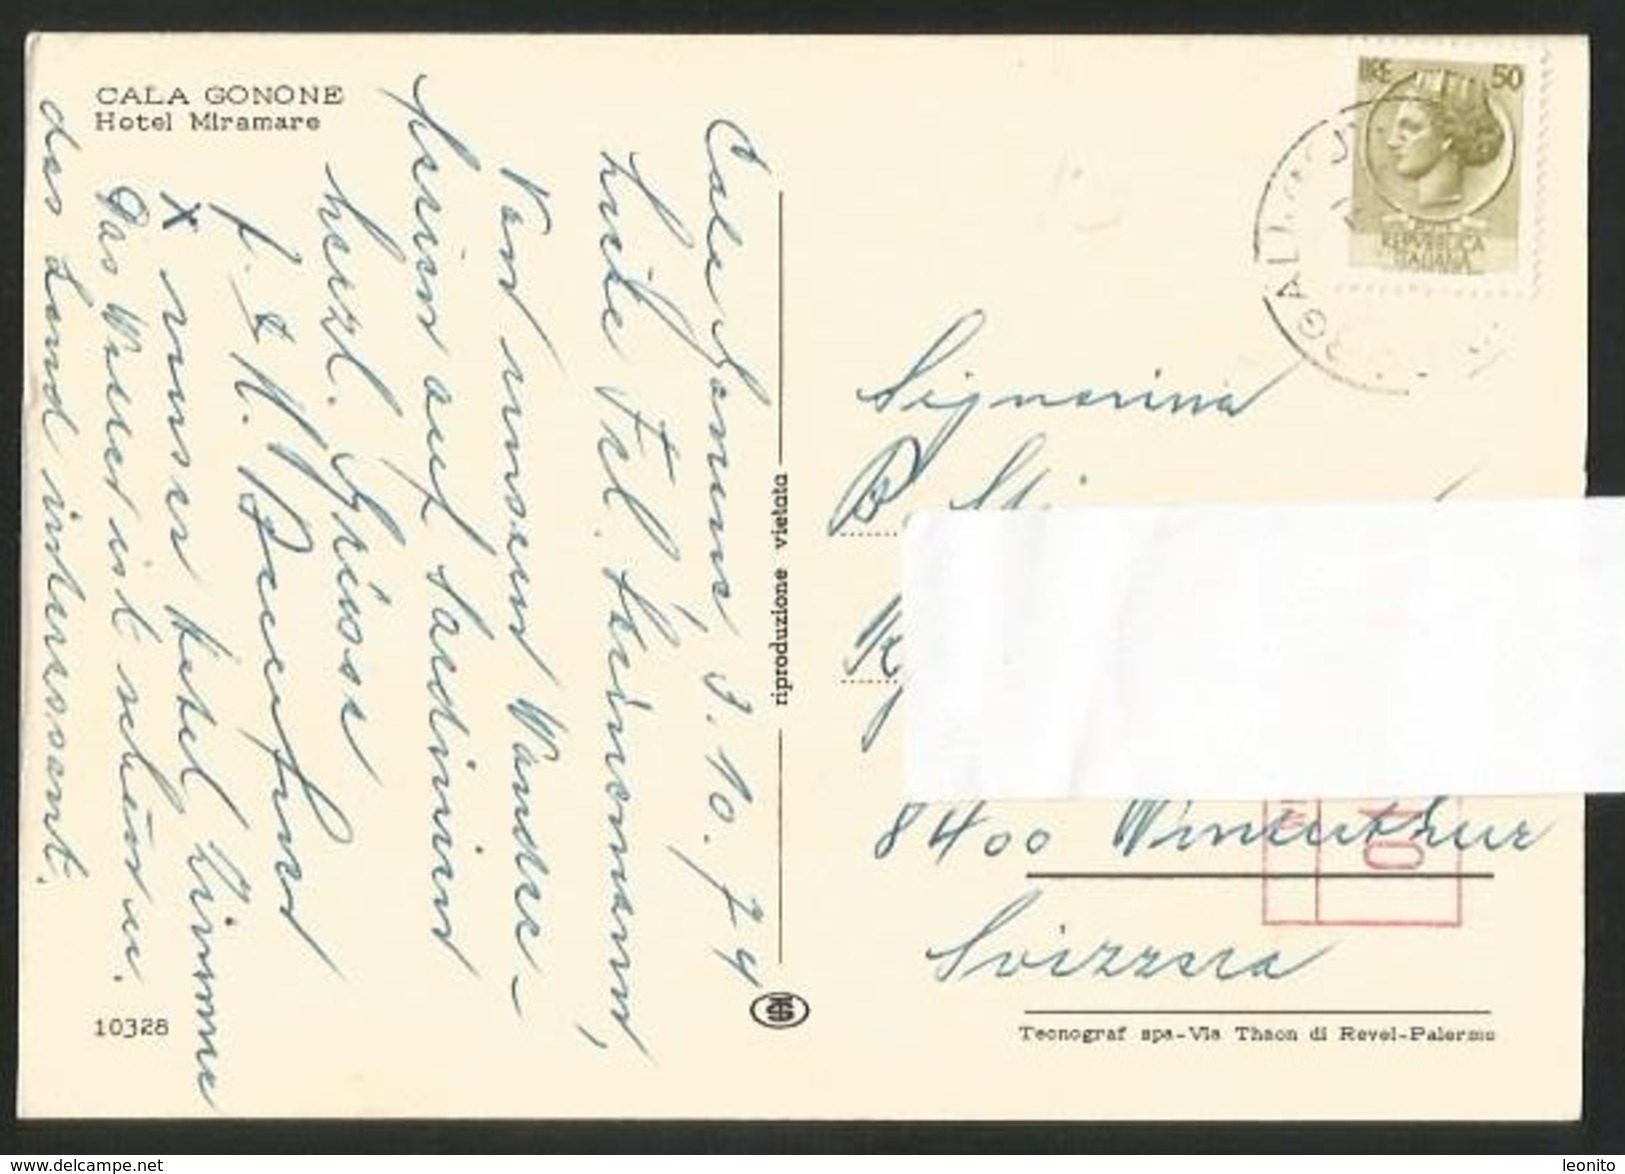 CALA GONONE
Hotel Miramare
Cala Gonone, 3.10.74
Liebe Frl. Heinemann,
Von unseren Wander-
ferien auf Sardinien
herzl. Grüsse
x unser Hotel Zimmer
Das Wasser ist schön u.
das Land interessant.
10328
riproduzione vietata
LIRE 50
REPVBBLICA
ITALIANA
Signorina
8400 Winterthur
Svizzera
Tecnograf spa-Via Thaon di Revel-Palermo
leonito
www.delcampe.net